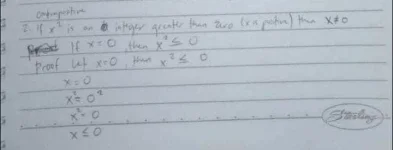 contrapositive
2. If x² is an integer greater than zero (x is positive) then x≠0
If x = 0, then x² ≤ 0
Proof Let x=0, then x² ≤ 0
x=0
x²=0²
x²=0
x≤0
Sterling